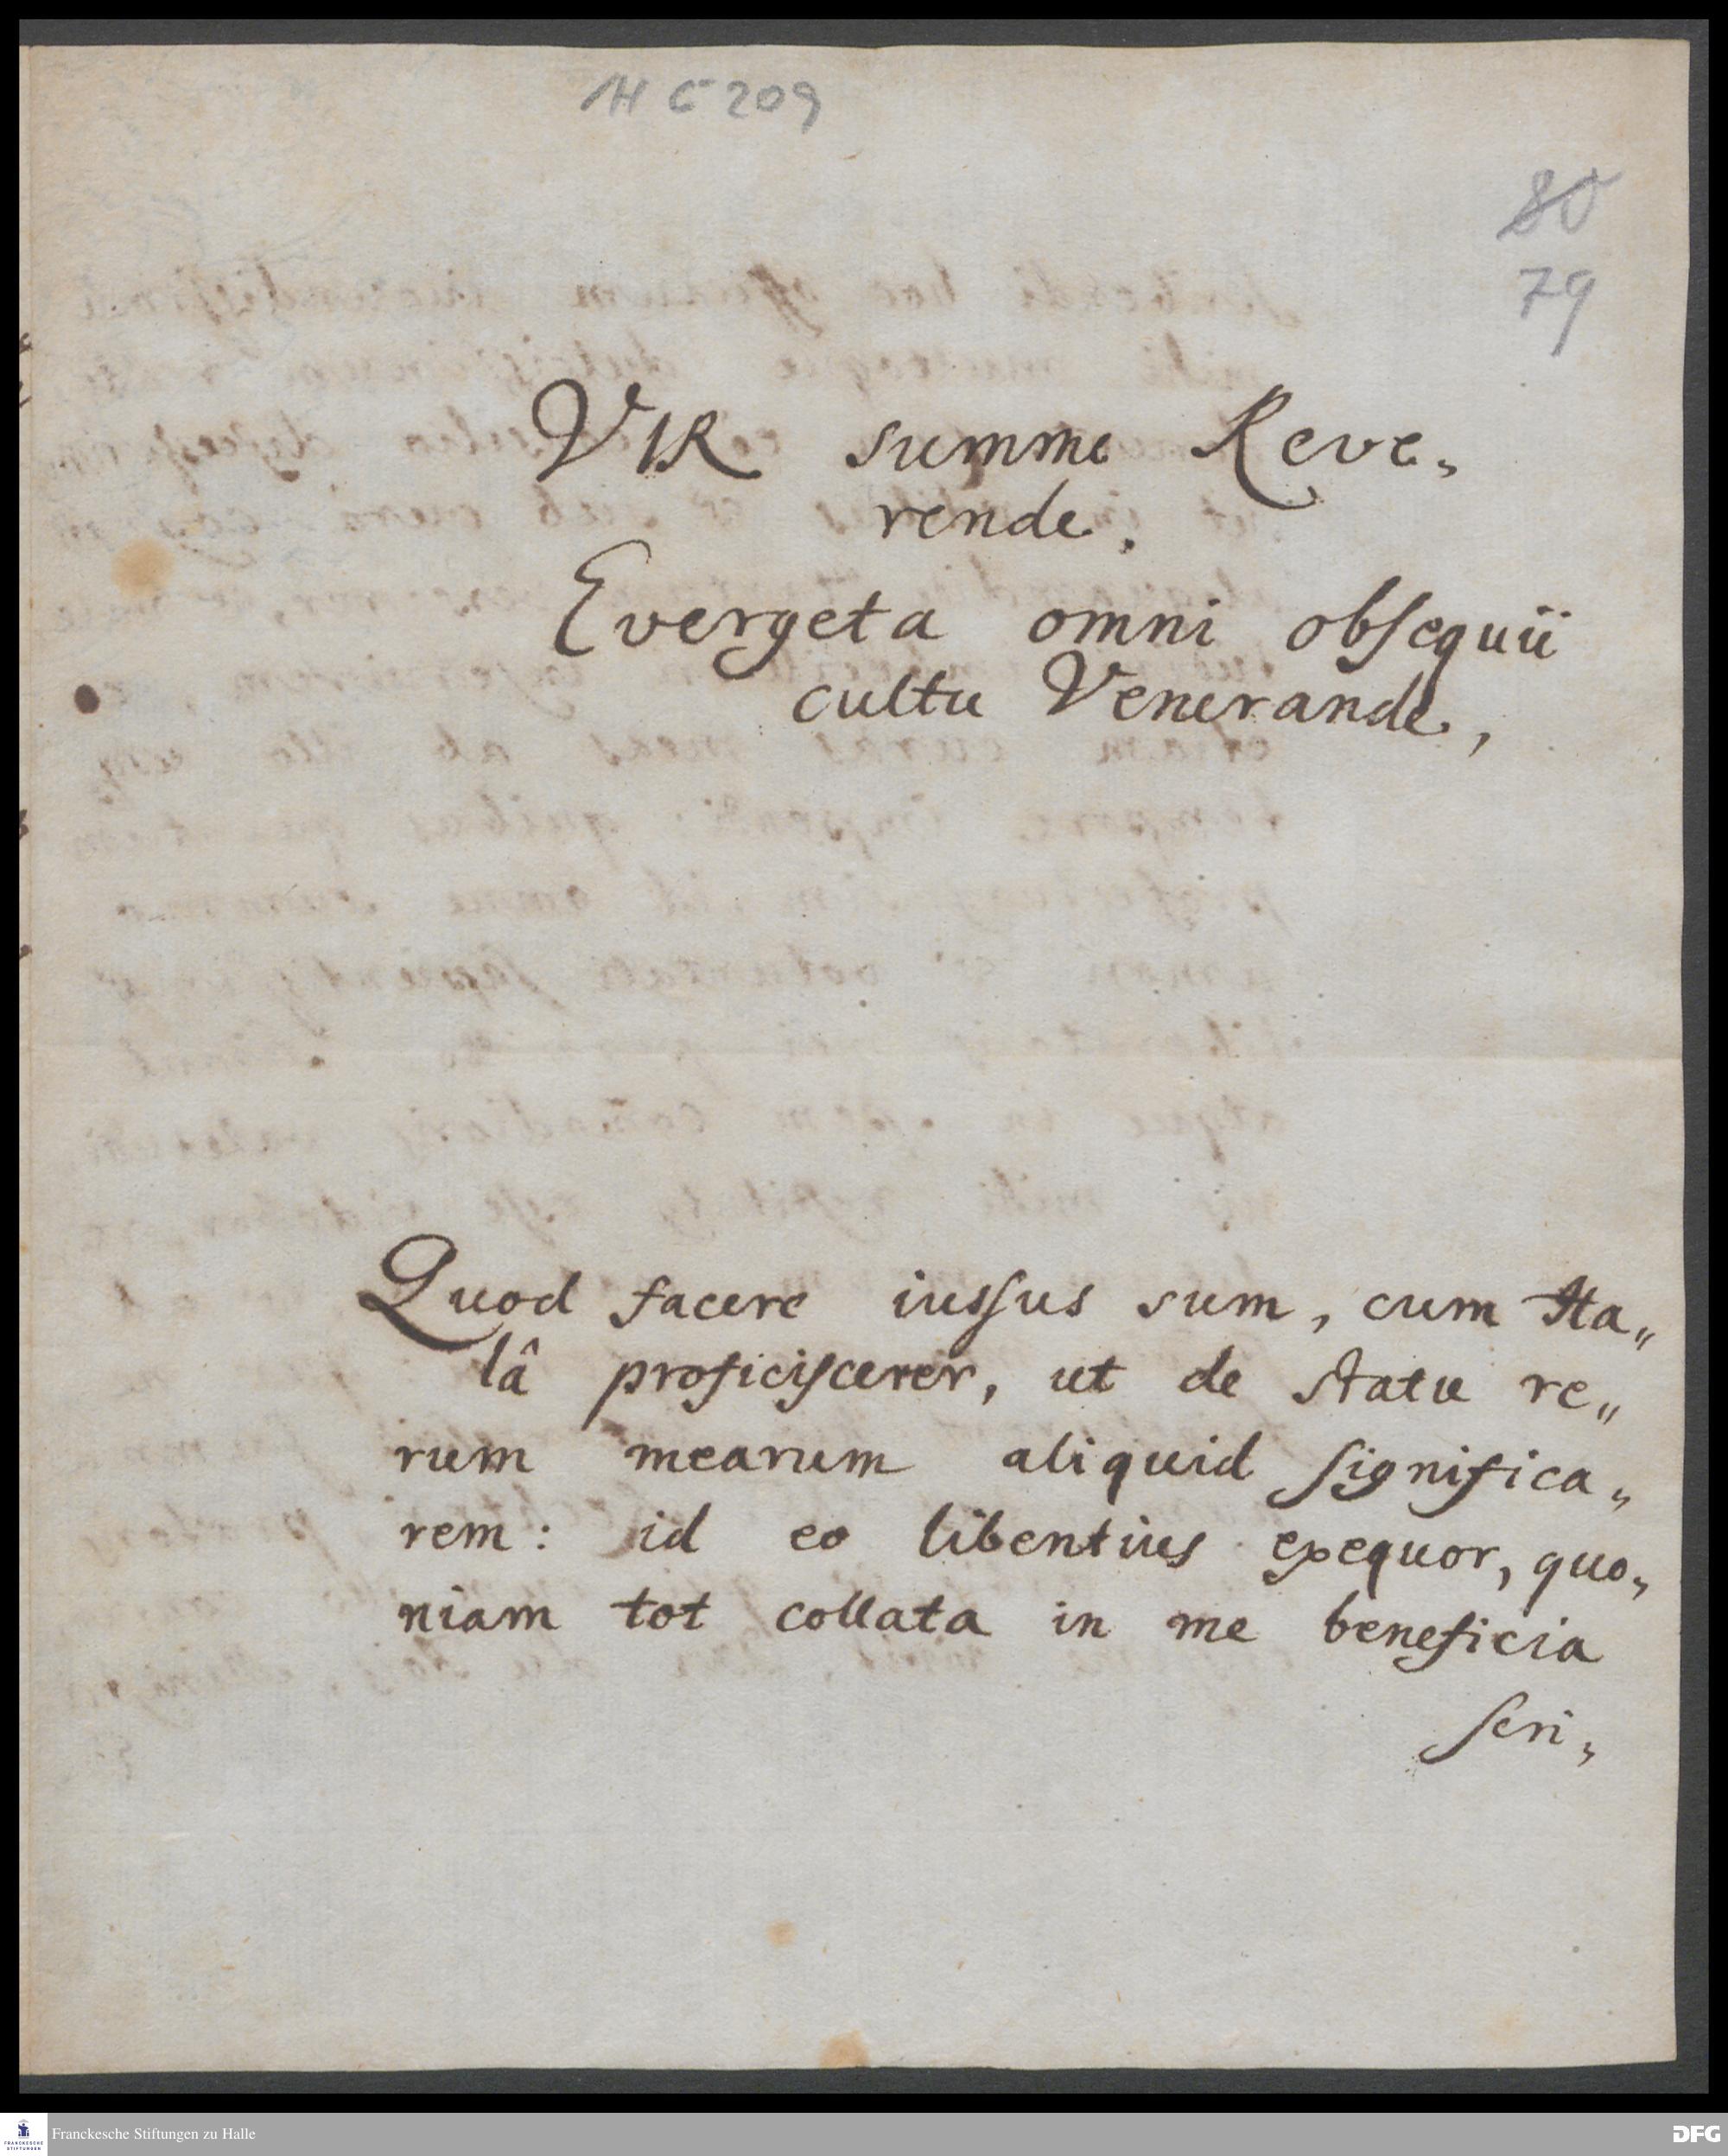 H C 209
80
79
VIR summe Reve„
rende,
Evergeta omni obsequii
cultu Venerande,
Quod facere iussus sum, cum Ha„
lâ proficiscerer, ut de statu re„
rum mearum aliquid significa„
rem: id eo libentius exequor, quo„
niam tot collata in me beneficia
scri„
Franckesche Stiftungen zu Halle
FRANCKESCHE
STIFTUNGEN
DFG